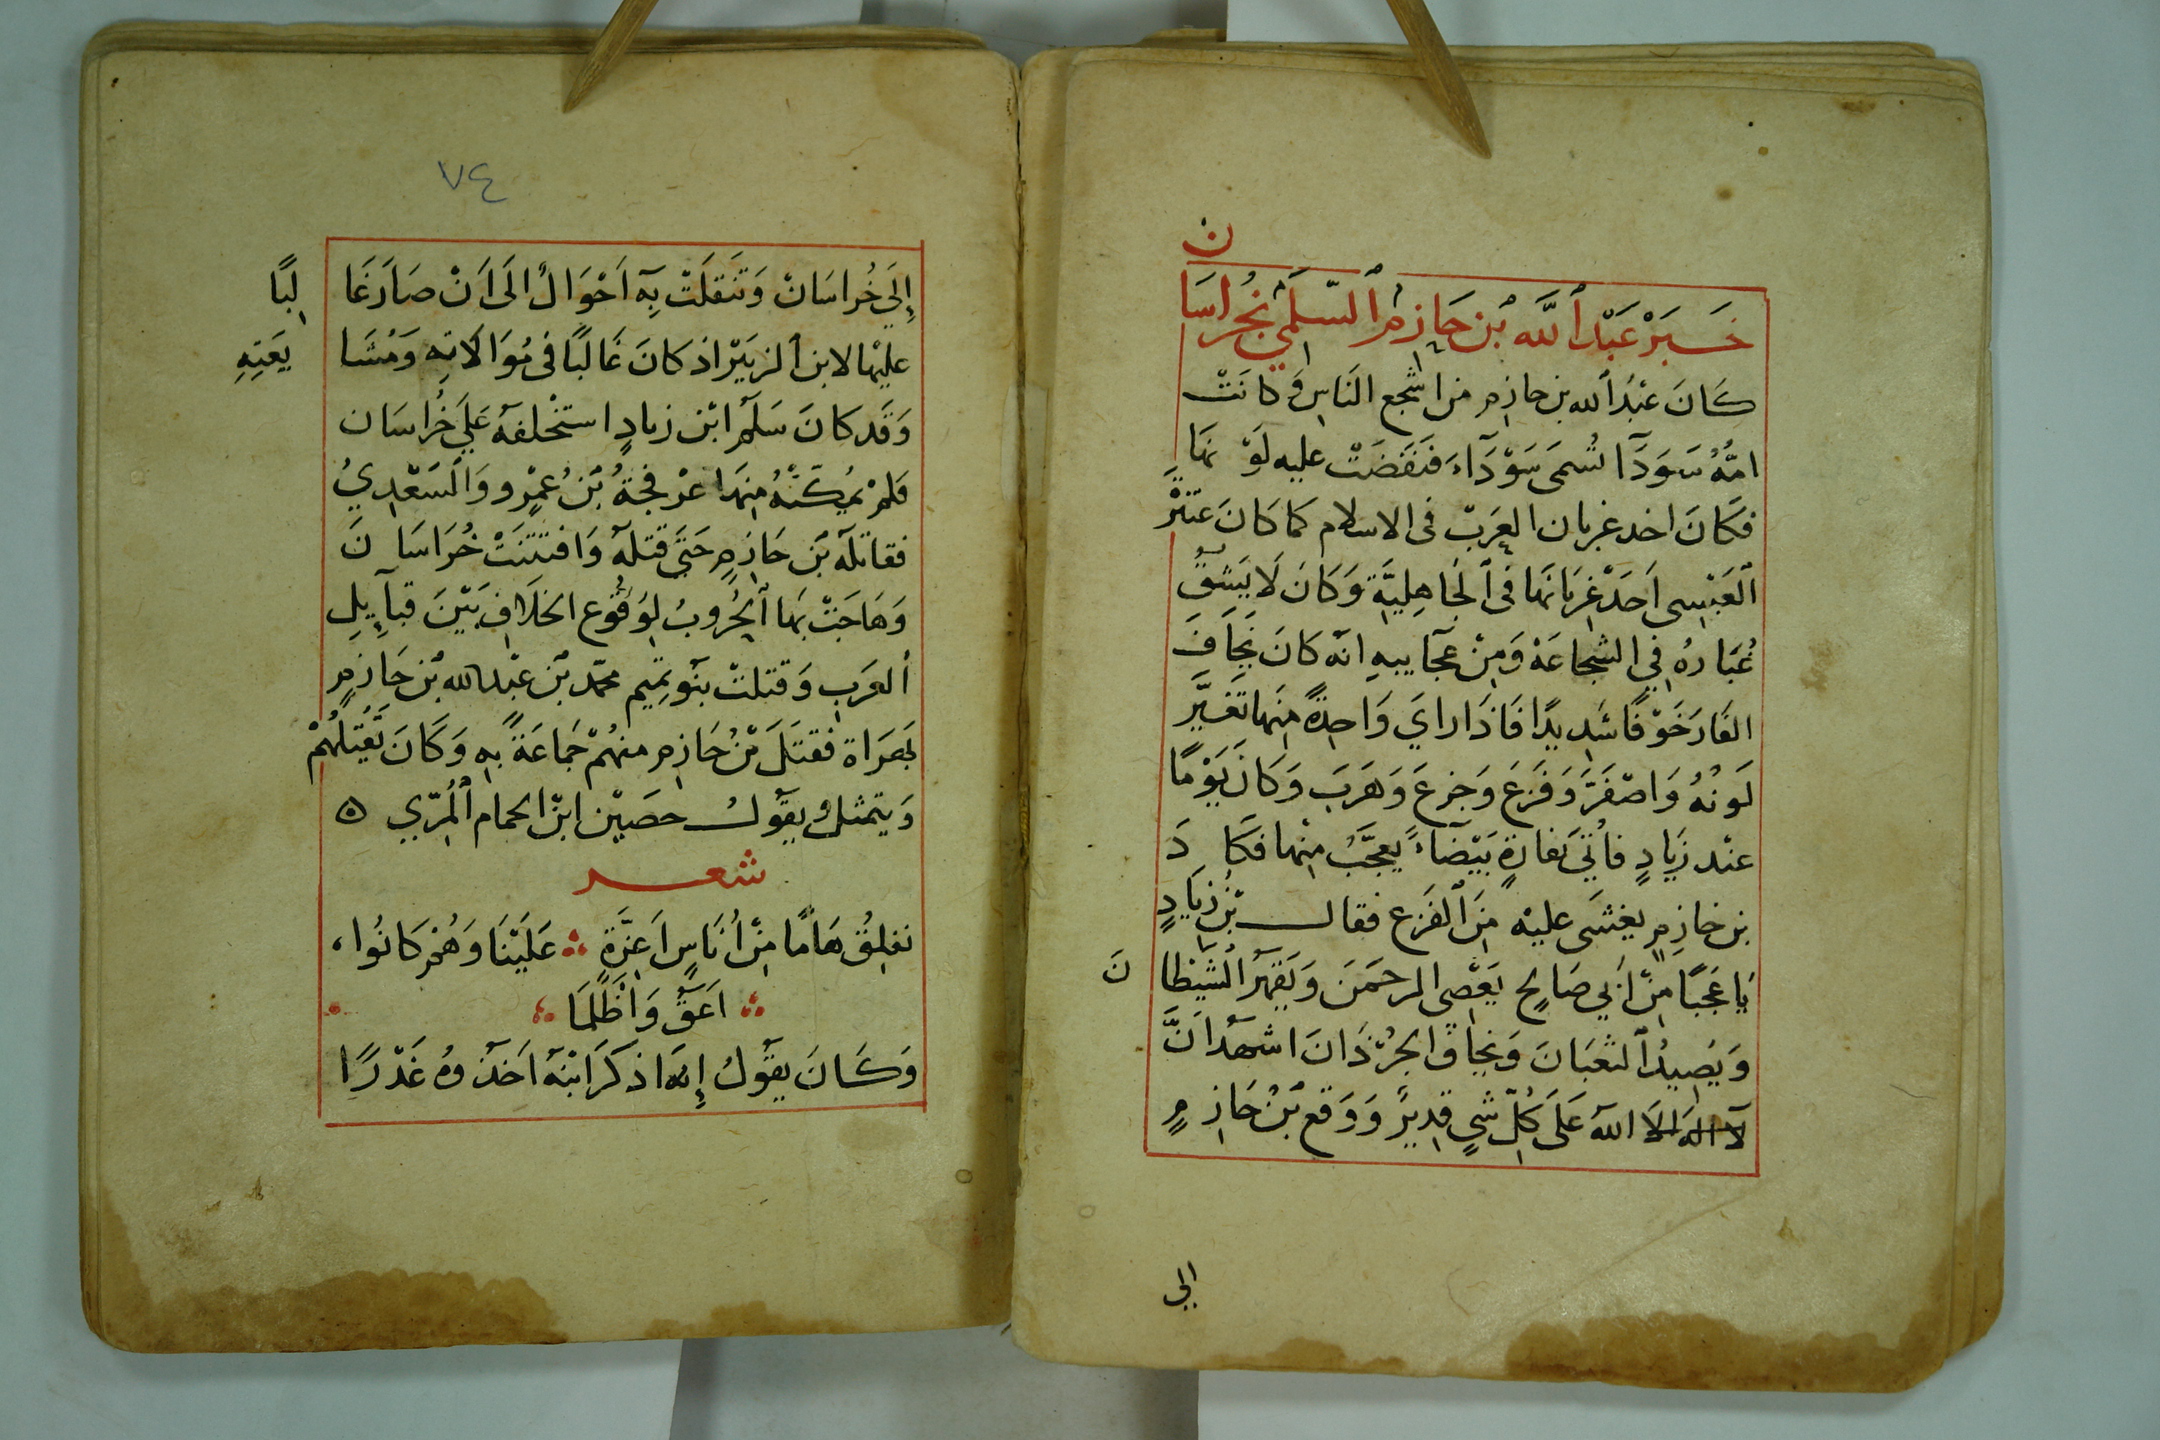 ن
خَبَرْ عَبْد ٱللَّه بْن حَازِم ٱلسّلَمي بخُراسَا
كَانَ عبْدُ ٱلله بن حازِم من اشجع النَاسِ وَكانَتْ
امّهُ سَوَدَآ تُسمَى سَوْدَآءَ فَنَفَضَتْ عليه لَوْنَهَا
فكَانَ احد غربان العَرَبْ فى الاسلام كما كَانَ عَنتَرْ
ٱلعَبْسِى اَحَدْ غِربَانَهَا فى ٱلجَاهِلِيَّةِ وَكَانَ لَا يَشِقُّ
غُبَارهُ فِي الشجاعَهْ وَمِنْ عجآيبهِ انّه كانَ يَخَافَ
الفَار خَوْفًا شَدِيدًا فَاذَا رايَ وَاحِدةً مِنهَا تَغَيَّر
لَونُهُ وَاصْفَرَّ وَفَزعَ وَجزعَ وَهَرَبَ وَكَانَ يَوْمًا
عنْد زيَادٍ فاُتيَ بَفارَةٍ بَيْضآءَ يعجَّبُ مِنْها فكَادَ
بن خازِمٍ يغشَى عليْه مِنَ ٱلفَزع فقال بْنُ زِيَادٍ
يَا عَجَبًا مِنْ اَبي صَالحٍ يَعْصِى الرحمَن وَيَقهَرُ الْشَيْطا
نَ
وَيَصِيدُ ٱلثعْبَانَ وَيخافَ الجُرْذَانَ اشهَدُ اَنَّ
لآ اله الا اللهَ عَلَى كُلِّ شيٍ قِديرً وَوَقع بْنُ حَازِمٍ
الي
٧٤
إِلَي خُراسَان وَتَنَقلَتْ بِهِ اَحْوَالٌ الَى اَنْ صَارَ غَا
لبًا
عليْها لابن ٱلزبَيْر اذ كانَ غَالبًا فى مُوَالَاتِهِ وَمُشَا
يعَتِهِ
وَقَد كانَ سَلَمُ ابْن زيادٍ استخْلفهُ عَلَي خُراسَان
فَلمْ يُمكّنْهُ مِنهَا عرْفجَةُ بْنُ عَمْرو وَٱلسَعْدِيُ
فقاتلَه بْن حَازِمٍ حَتَى قتلهُ وَافتَتنَتْ خُرَاسَانَ
وَهَاجَتْ بهَا ٱلحُرُوبُ لِوُقُوع الخلَافِ بَيْنَ قبآيِلِ
ٱلعَربِ وَقتلتْ بنُو تمِيم محمّد بْن عبْد الله بْن حَازِمٍ
بَهرَاة فقتَلَ بْنُ حَازِم منهُمْ جَمَاعَةً بهِ وَكَانَ يَقْتلُهُمْ
وَيتمثلُ بِقَول حصَيْن ابْن الحمام ٱلمُرّي ه
شعر
نفلِقُ هَامًا مِنْ اُنَاسٍ اَعِزَّةٍ ؞ عَلَيْنَا وَهُمْ كَانُوا،
؞ اَعَقَّ وَاَظْلَمَا ؞
وَكَانَ يقُولُ إِنه اذ كَرَ ابْنهُ اَخَذُوهُ غَدْرًا